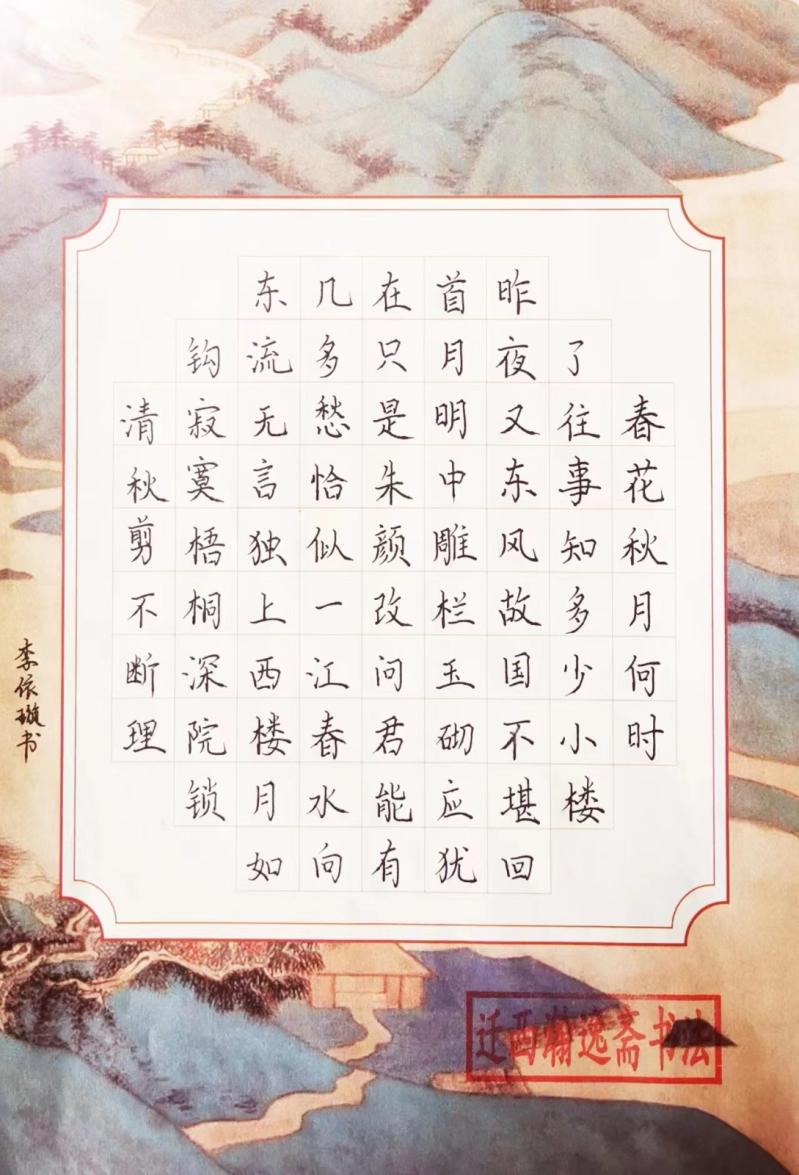 春花秋月何时
了往事知多少小楼
昨夜又东风故国不堪回
首月明中雕栏玉砌应犹
在只是朱颜改问君能有
几多愁恰似一江春水向
东流无言独上西楼月如
钩寂寞梧桐深院锁
清秋剪不断理
李依璇书
迁西瀚逸斋书法